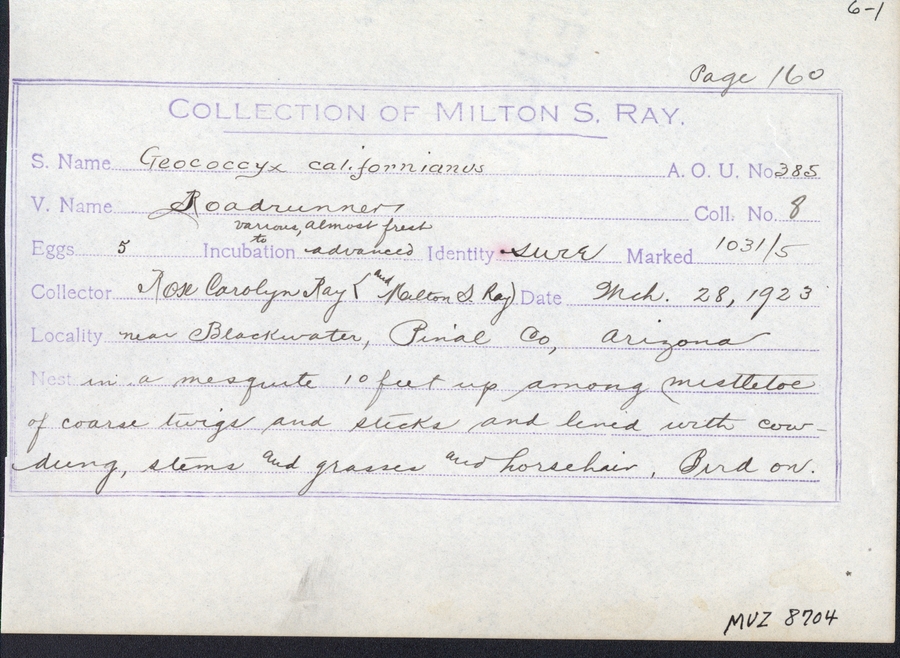 6-1
Page 160
COLLECTION OF MILTON S. RAY.
S. Name Geococcyx californianus A. O. U. No. 385
V. Name Roadrunner Coll. No. 8
various, almost fresh
Eggs 5 Incubation to advanced Identity sure Marked 1031/5
Collector Rose Carolyn Ray (and Milton S. Ray) Date Mch. 28, 1923
Locality near Blackwater, Pinal Co, Arizona
Nest in a mesquite 10 feet up among mistletoe
of coarse twigs and sticks and lined with cow-
dung, stems and grasses and horsehair, Bird on.
MVZ 8704